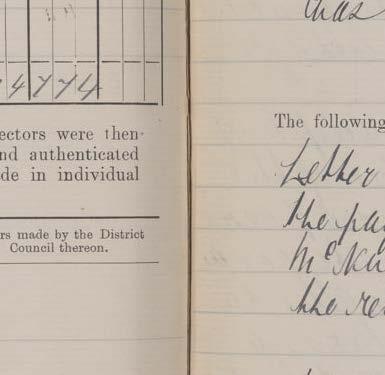 4 7 7 4
ectors were then-
nd authenticated
de in individual
rs made by the District
Council thereon.
Chas
The following
Letter
the pa
the re